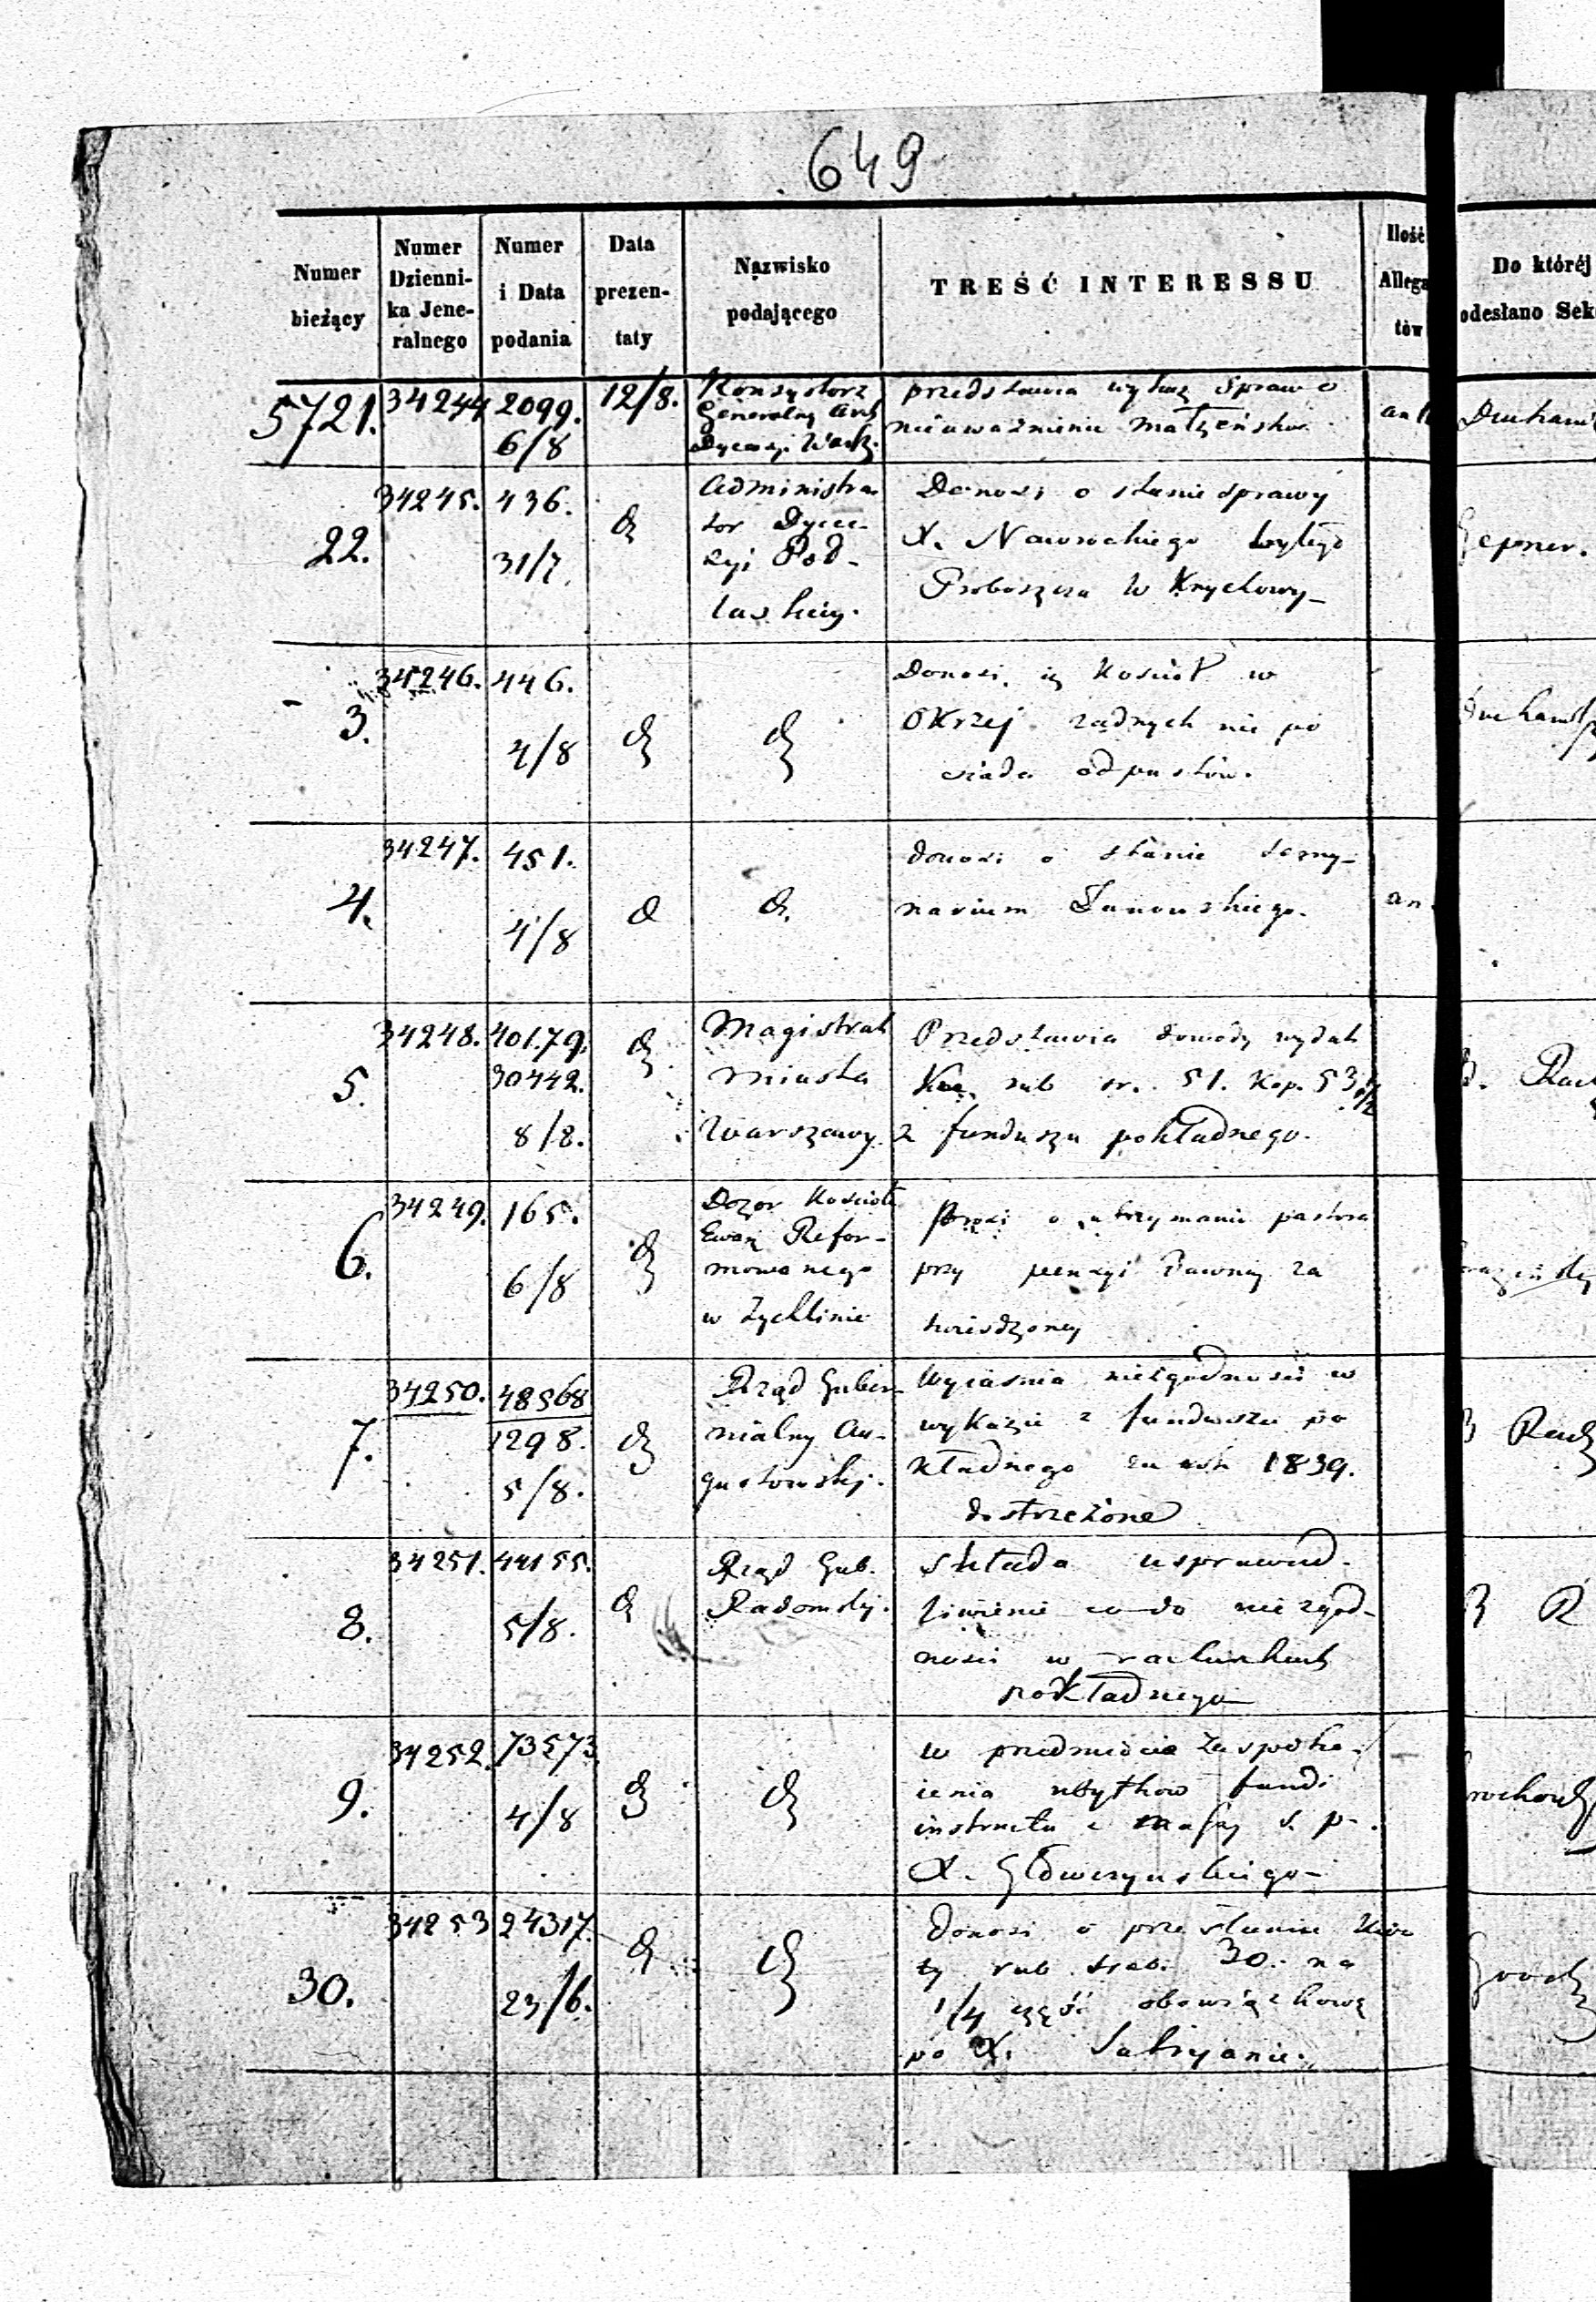 649
Numer bieżący
Numer Dzienni-ka Jene-ralnego
Numer i Data podania
Data prezen-taty
Nazwisko podającego
TREŚĆ INTERESSU
Ilość Allega tów
Do któréj odesłano Sek
5721. 34244 2099. 6/8 12/8.
Konsystorz
Generalny Arch
Dyecezyi Warsz.
przedstawia wykaz spraw o
nieuważnienie małżeństw
22. 34245. 436. 31/7.
Administra
tor Dyece-
zyi Pod-
laskiey.
Donosi o stanie sprawy
X. Nawrockiego byłego
Proboszcza w
Gepner.
3. 34246. 446. 4/8
Donosi, iż Kościół w
Okrzej żadnych nie po
siada odpustów.
4. 34247. 451. 4/8
donosi o stanie semy-
narium Janowskiego.
an.
5. 34248. 40179. 30442. 8/8.
Magistrat
miasta
Warszawy.
Przedstawia dowody wydat
rub sr. 51. kop. 53 1/2
z funduszu pokładnego.
6. 34249. 165. 6/8
Dozór Kościoła
Ewang Refor-
mowanego
w Żychlinie
Prosi o utrzymanie pastora
przy pensyi dawney za
twierdzoney
7. 34250. 48568 1298. 5/8.
Rząd Guber-
nialny Au-
gustowskj.
Wyjaśnia niezgodności w
wykazie z funduszu po
kładnego za rok 1839.
dostrzeżone
8. 34251. 44155. 5/8.
Rząd Gub.
Radomskj.
Składa usprawied-
liwienie co do niezgod-
ności w rachunkach
pokładnego
9. 34252. 73573. 4/8
w przedmiocie zaspoko-
jenia ubytków fundi
instructi z massy ś. p.
X.
30. 34253 24317. 23/6.
Donosi o przesłaniu kwo
ty rub sreb. 30. na
1/4 część obowiązkową
po X.